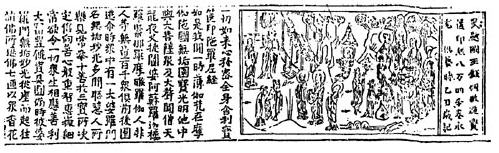 吳越國王錢俶敬造寶
篋印經八万四千卷永
充供養時乙丑歲記
一切如來秘密全身舍利寶
篋印陀羅尼經
如是我聞一時薄伽梵在摩
伽陀國無垢園寶光明池中
與大菩薩衆及大聲聞僧天
龍夜叉揵闥婆阿蘇羅迦樓
羅緊那羅摩睺羅伽人非
人等無量百千衆俱前後圍
遶爾時衆中有一大婆羅門
名無垢妙光多聞聰慧人所
樂見常奉十善於三寶所決
定信向善心殷重智慧微細
常欲令一切衆生相應善利
大富豐饒資具圓滿時彼婆
羅門無垢妙光從座而起往
詣佛所遶佛七匝以衆香花